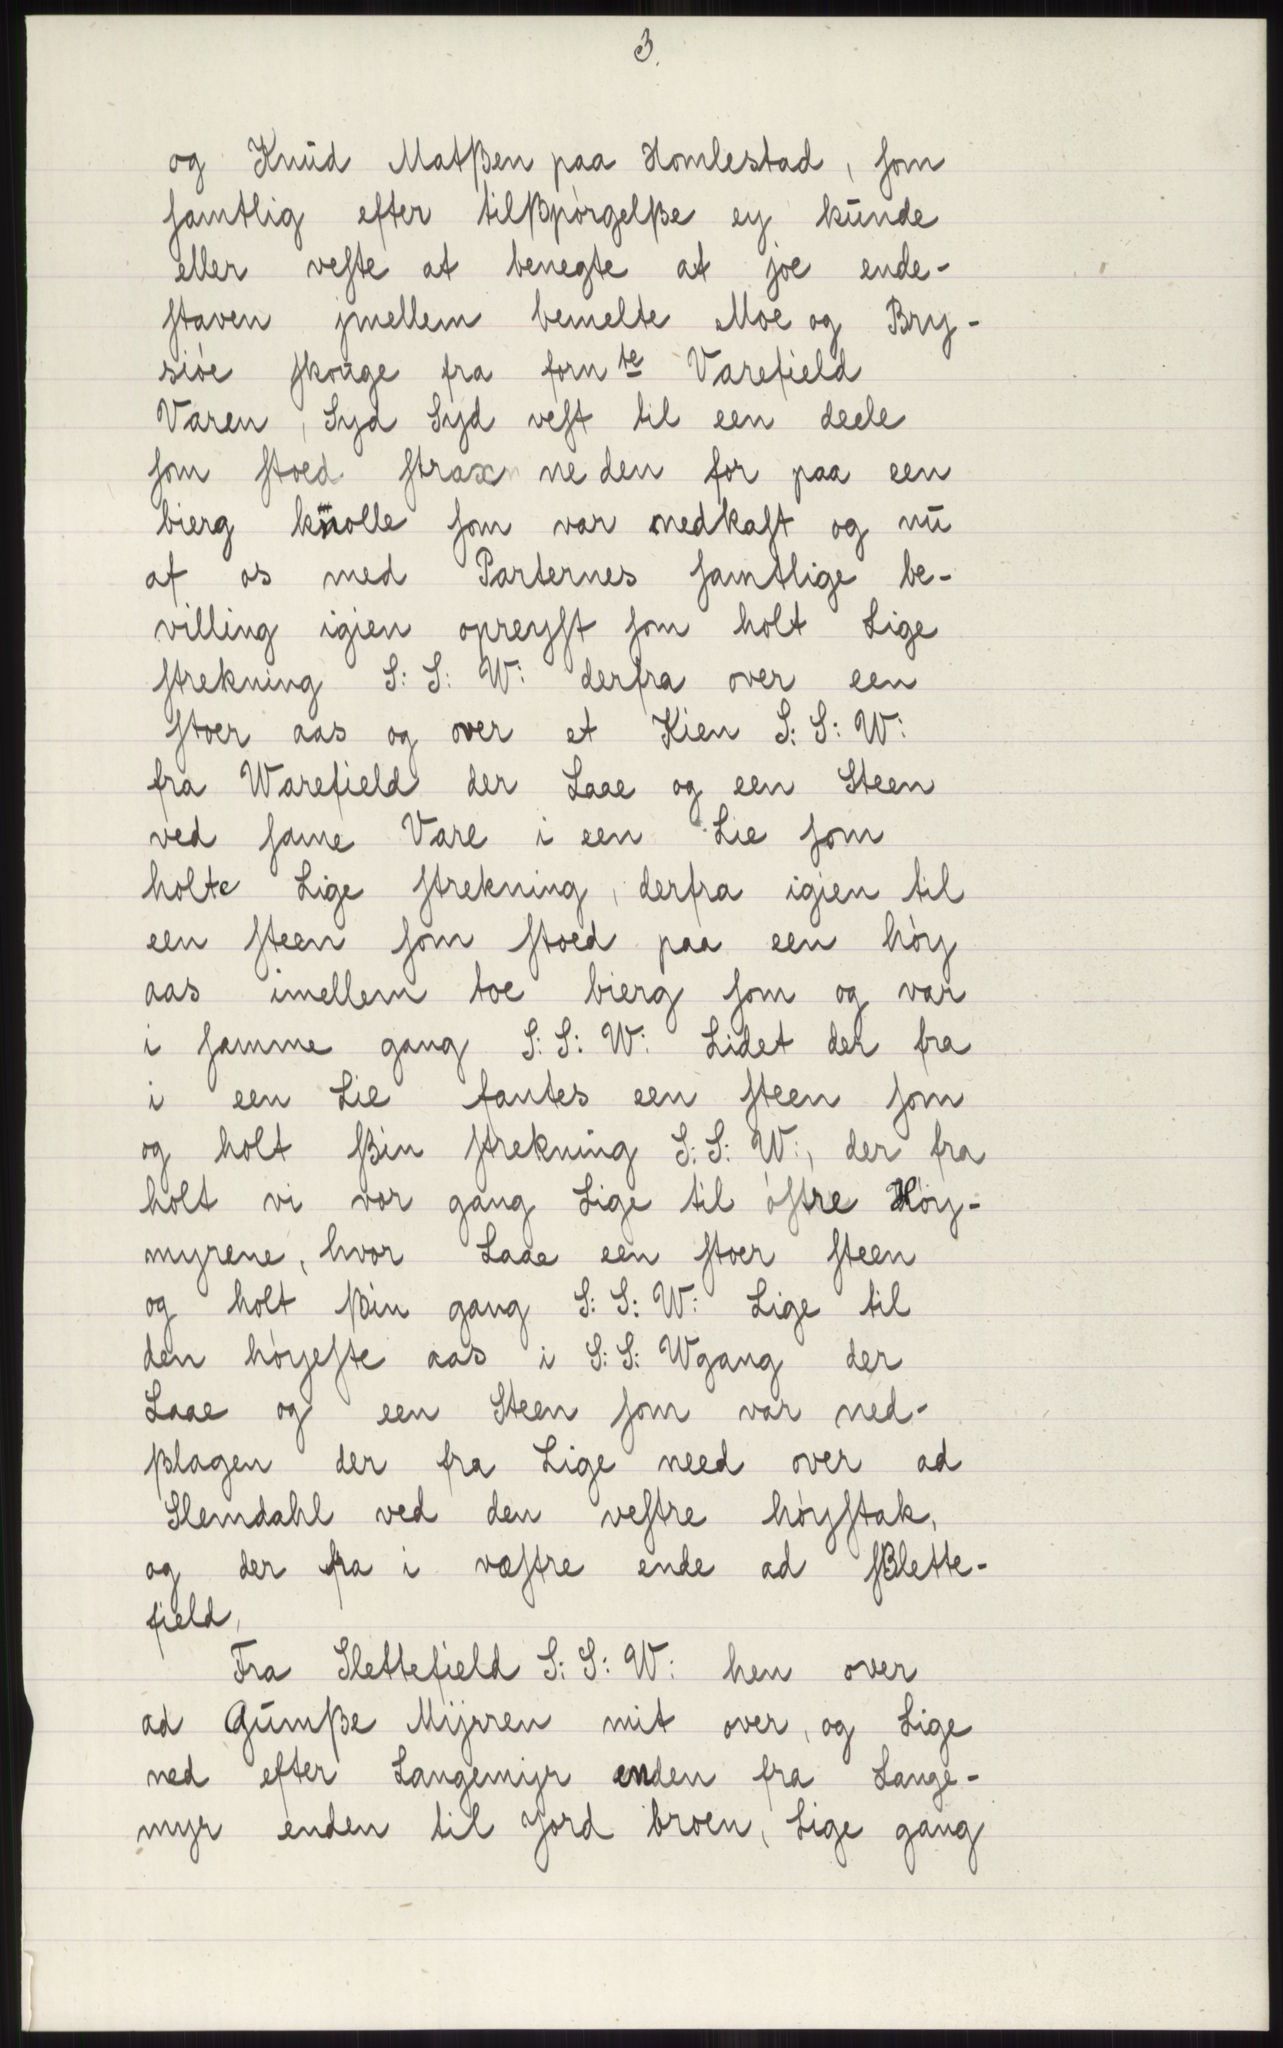 3.
og Knūd Matßen paa Homlestad, som
samtlig efter tilßpörgelße ey kūnde
eller veste at benegte at joe ende-
staven jmellem bemelte Moe og Bry-
siöe skoūge fra forn te Varefield
Varen, Syd Syd vest til een deele
som stoed strax neden for paa een
bierg knolle som var nedkast og nū
af os med Parternes samtlige be-
villing igien opreyst som holt Lige
strekning S: S: W: derfra over een
stoer aas og over et Kien S: S: W:
fra Warefield der Laae og een Steen
ved same Vare i een Lie som
holte Lige strekning, derfra igien til
een steen som stoed paa een höy
aas imellem toe bierg som og var
i samme gang S: S: W: Lidet der fra
i een Lie fantes een steen som
og holt ßin strekning S: S: W:, der fra
holt vi vor gang Lige til östre Höy-
myrene, hvor Laae een stoer steen
og holt ßin gang S: S: W: Lige til
den höyeste aas i S: S: Wgang der
Laae og een Steen som var ned-
ßlagen der fra Lige need over ad
Slemdahl ved den vestre höystak,
og der fra i væstre ende ad sBlette-
field,
Fra Slettefield S: S: W: hen over
ad Gūmße Mijrren mit over, og Lige
ned efter Langemijr enden fra Lange-
myr enden til Jord broen, Lige gang